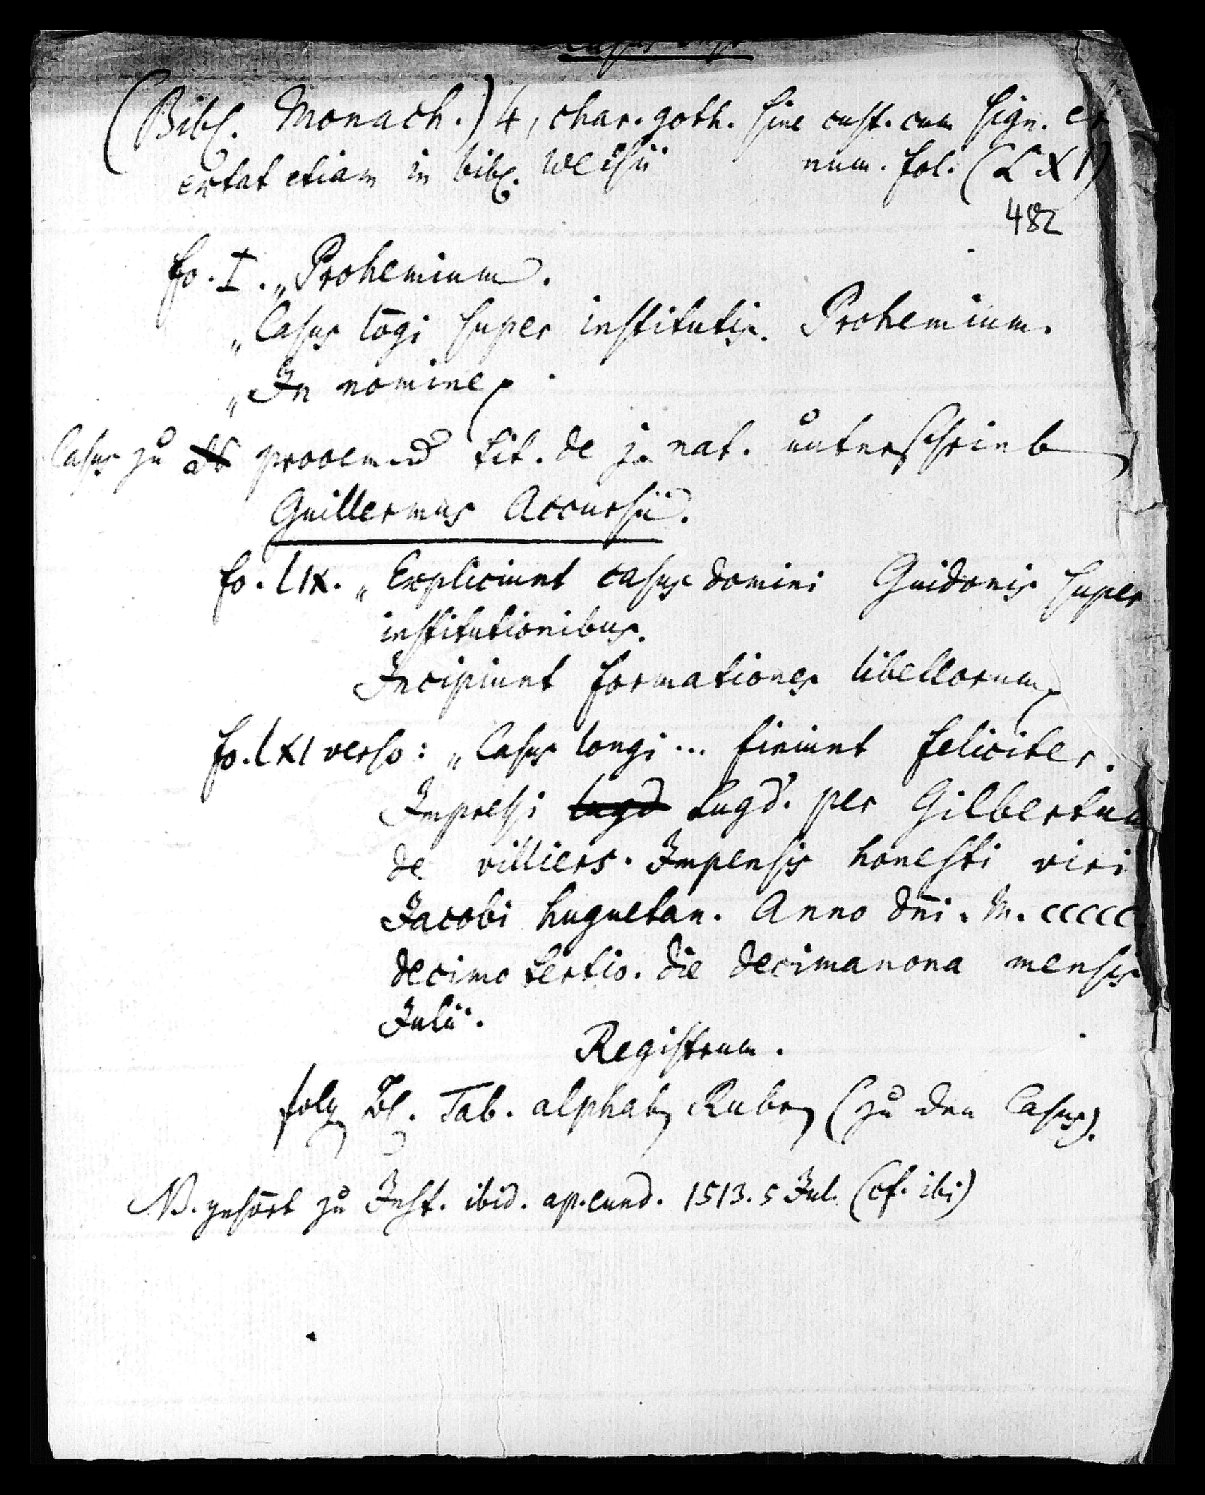 (Bibl. Monach.) 4, char. goth. sine cust. cum sign. et
extat etiam in bibl. Weisii num. fol. (LXI)
482
fo. I. „Prohemium.
„Casus lōgi super institutis. Prohemium.
„In nomine
Casus zu prooem. und tit. de j. nat. unterschrieb
Guillermus Accursii.
fo. lix. „Expliciunt casus domini Guidonis super
institutionibus.
Incipiunt formationes libellorum
fo. lxi verso: „Casus longi ... finiunt feliciter.
Impressi lugd Lugd. per Gilbertum
de villiers. Impensis honesti viri
Jacobi huguetan. Anno dn̄i. M. ccccc
decimo tertio. die decimanona mensis
Julii.
Registrum.
folg. Bl. Tab. alphab. Rubr. (zu den Casus).
NB. gehört zu Inst. ibid. ap. eund. 1513. 5 Jul. (cf. ibi)